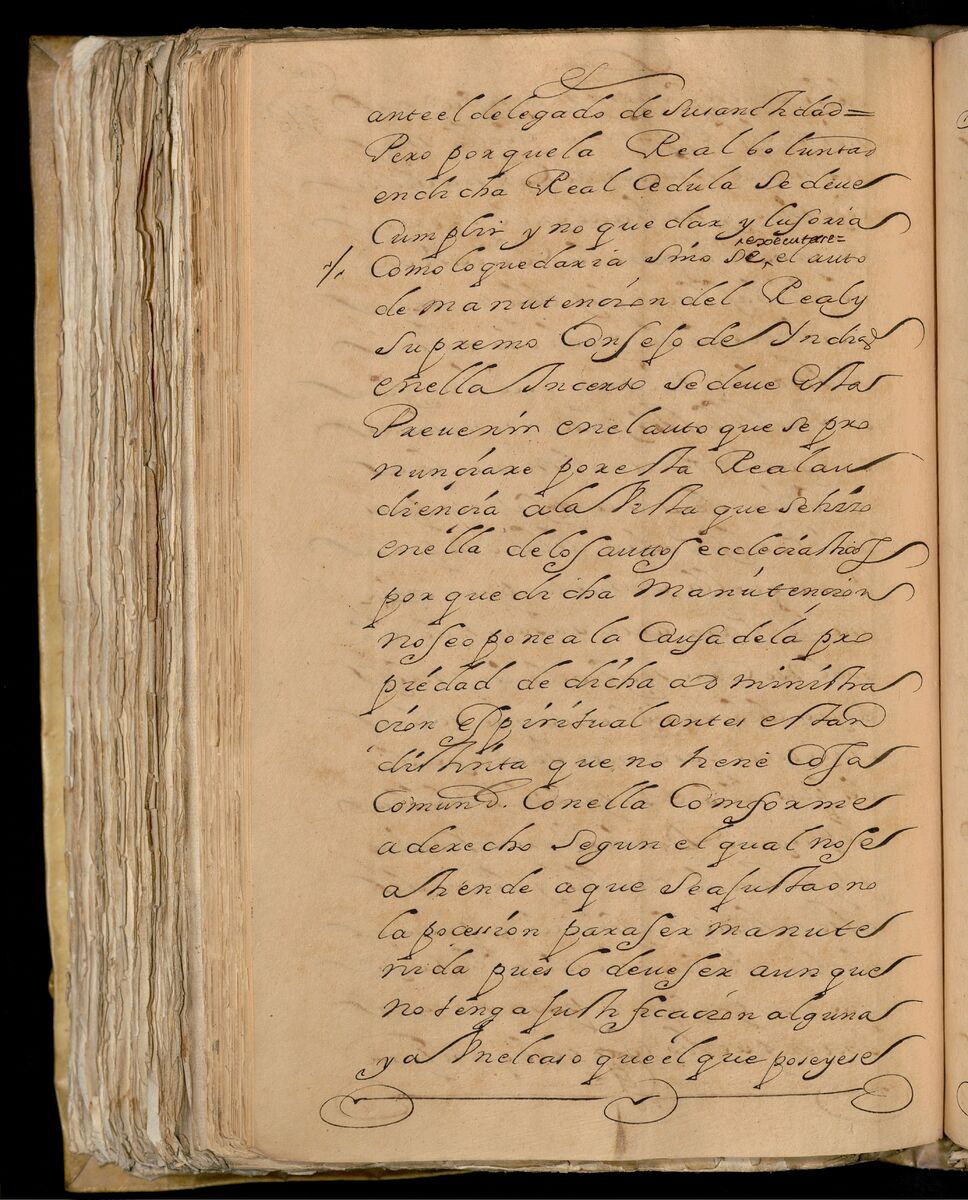 ante el delegado de su sanctidad=
Pero porque la Real boluntad
en dicha Real Cedula se deve
Cumplir y no quedar ylusoria
executare=
Como lo quedaria sino se el auto
de manutencion del Real y
Supremo Consejo de Yndias
en ella Yncerto se deve Esta
Prevenir en el auto que se pro
nunçiare por esta Real au
diençia a la Vista que se hizo
en ella de los auttos ecclesiasticos
porque dicha Manutencion
no se opone a la Causa de la pro
piedad de dicha administra
cion Espiritual antes es tan
distinta que no tiene Cosa
Comun. Con ella Comforme
a derecho segun el qual no se
atiende a que sea justa o no
la pocession para ser manute
nida pues lo deve ser aunque
no tenga justificacion alguna
y aVn el caso que el que poseyese